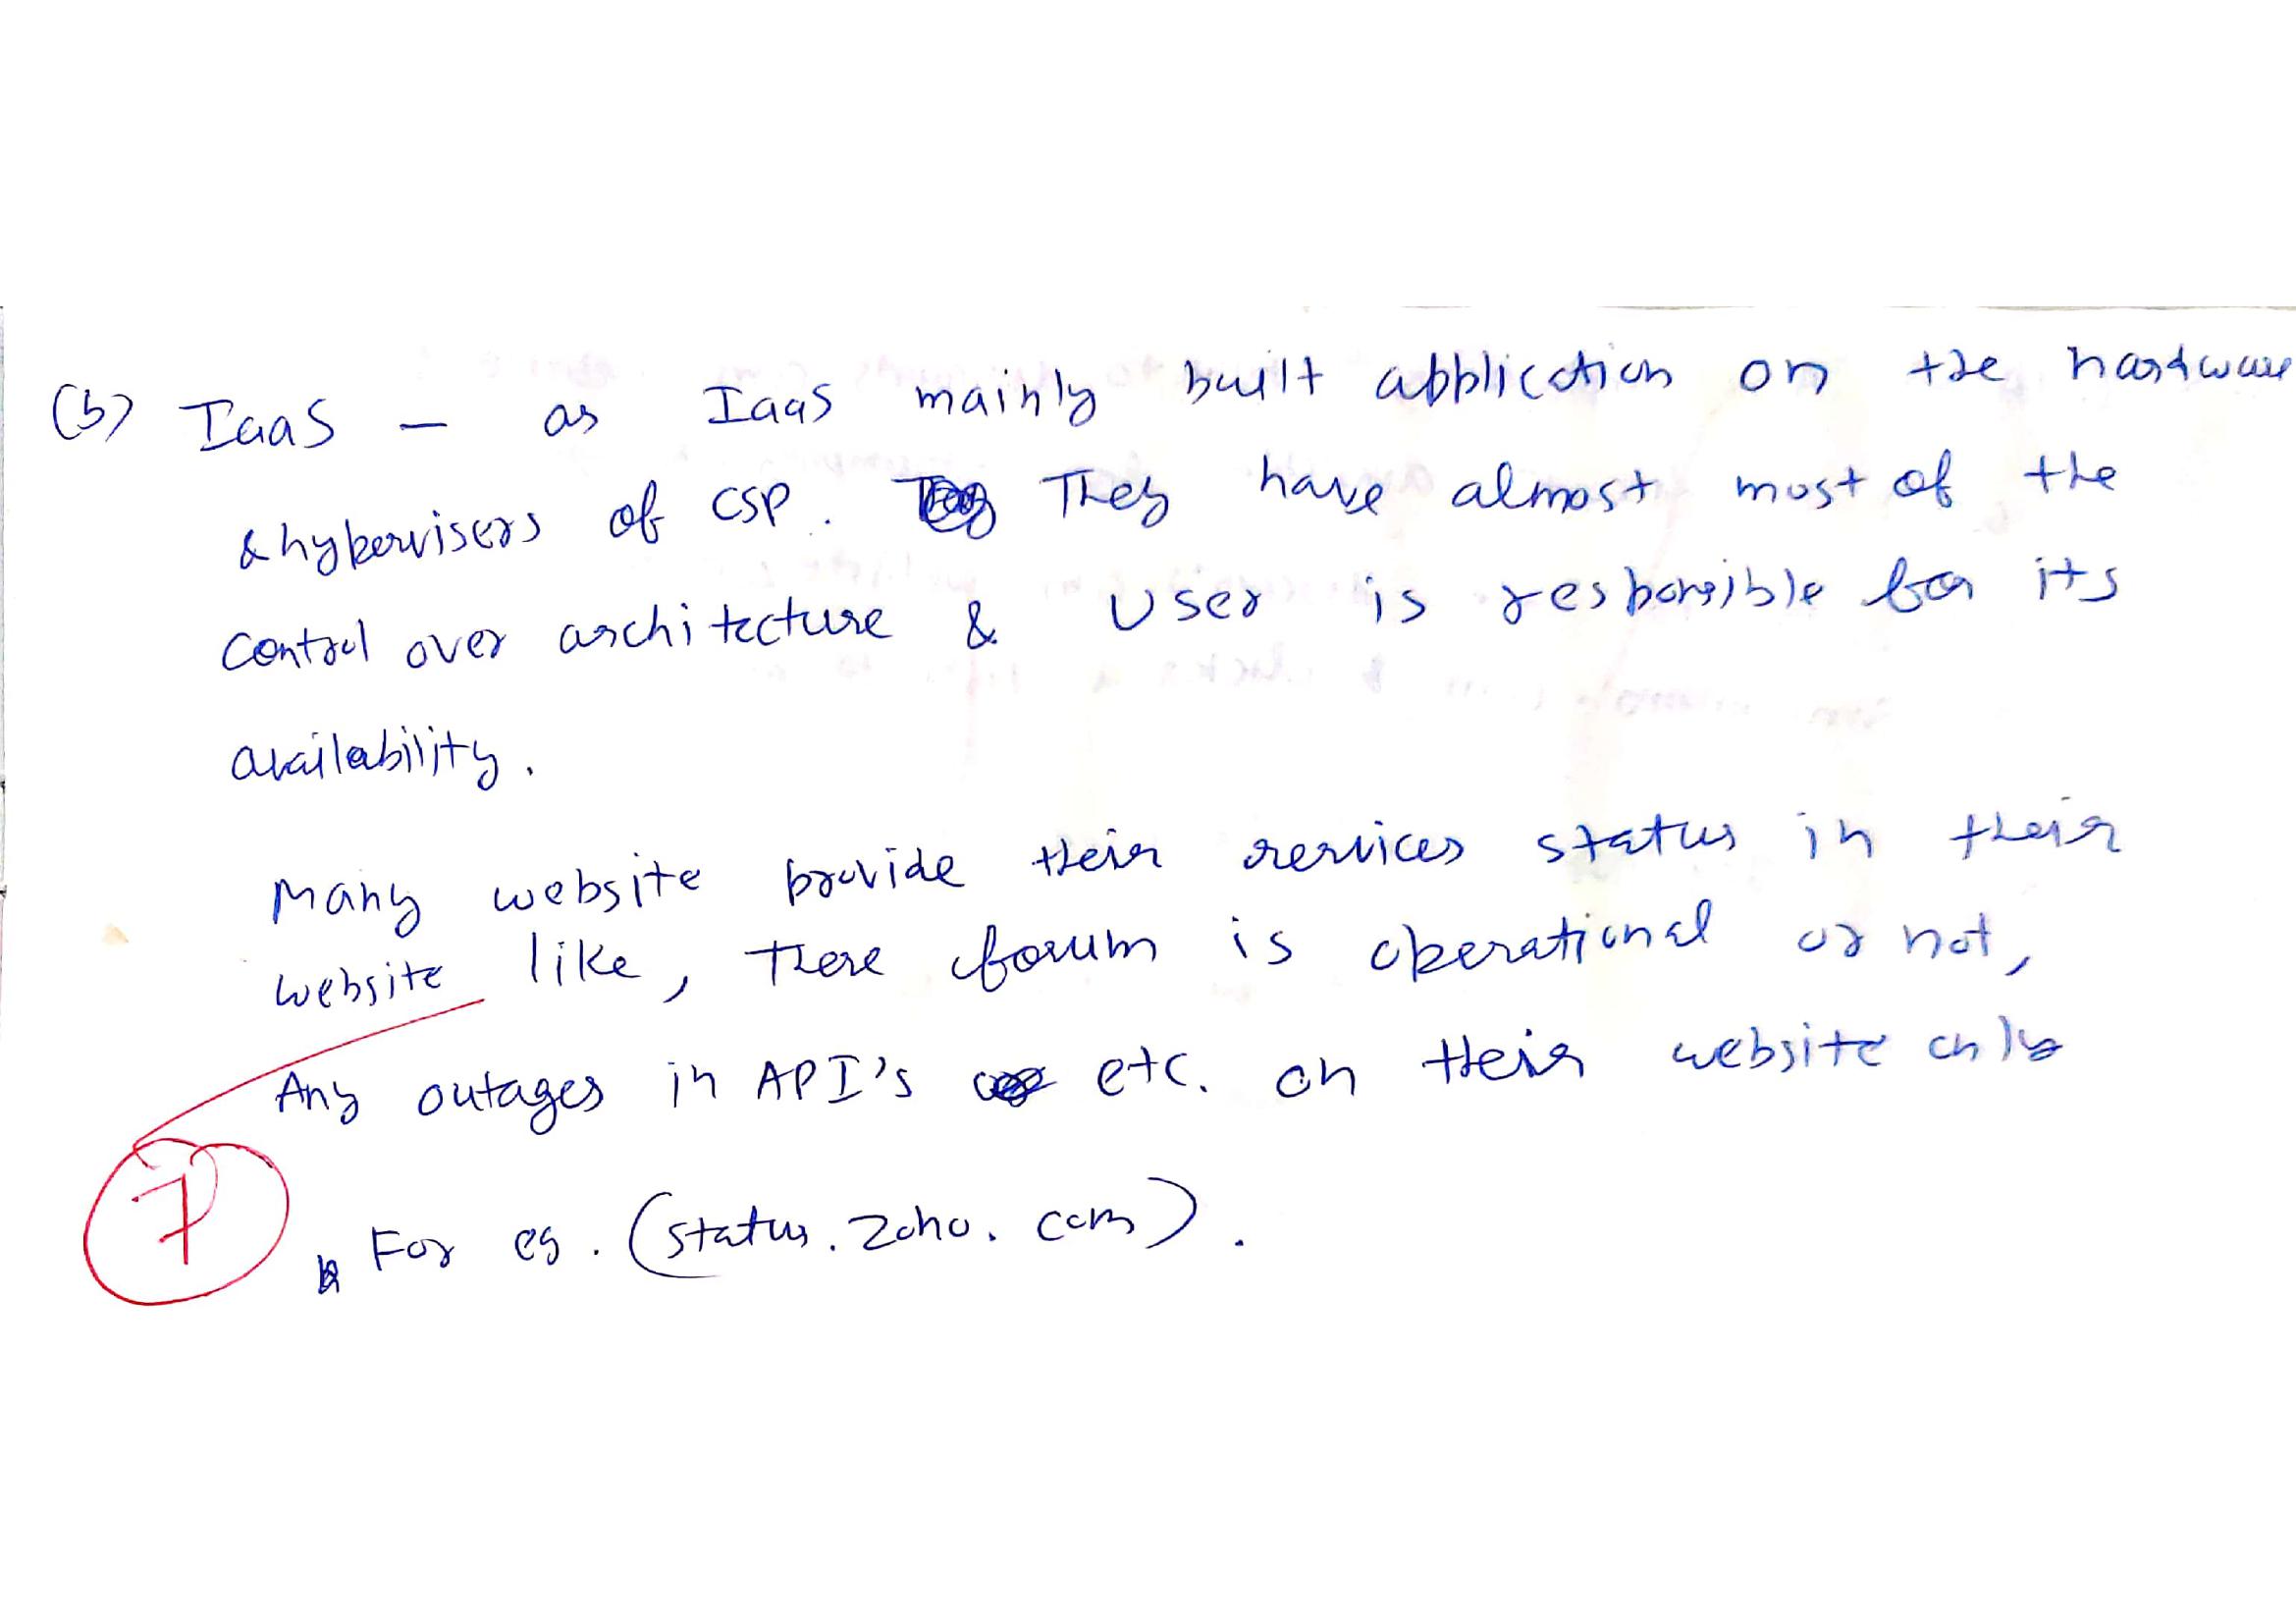 (b) IaaS - as IaaS mainly built application on the hardware
& hypervisers of CSP. They have almost most of the
control over architecture & User is responsible for its
availability.
Many website provide their services status in their
website like, there forum is operational or not,
Any outages in API's etc. on their website only
7
For eg. (status.zoho.com).